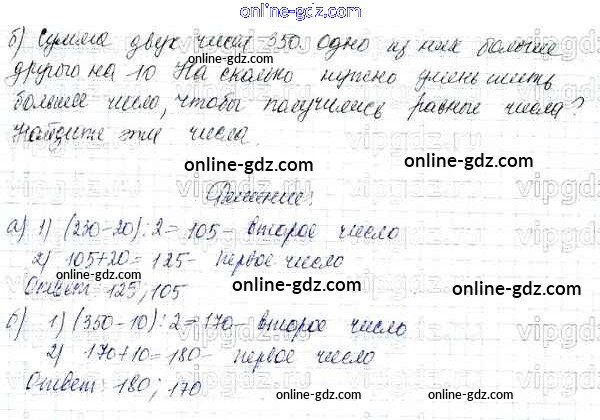 online-gdz.com
б) Сумма двух чисел 350. Одно из них больше
другого на 10. На сколько нужно уменьшить
большее число, чтобы получились равные числа?
Найдите эти числа.
online-gdz.com online-gdz.com
Решение:
а) 1) (230-20):2=105- второе число
2) 105+20=125- первое число
online-gdz.com online-gdz.com
Ответ: 125; 105
б) 1) (350-10):2=170- второе число
2) 170+10=180- первое число
Ответ: 180; 170
online-gdz.com online-gdz.com